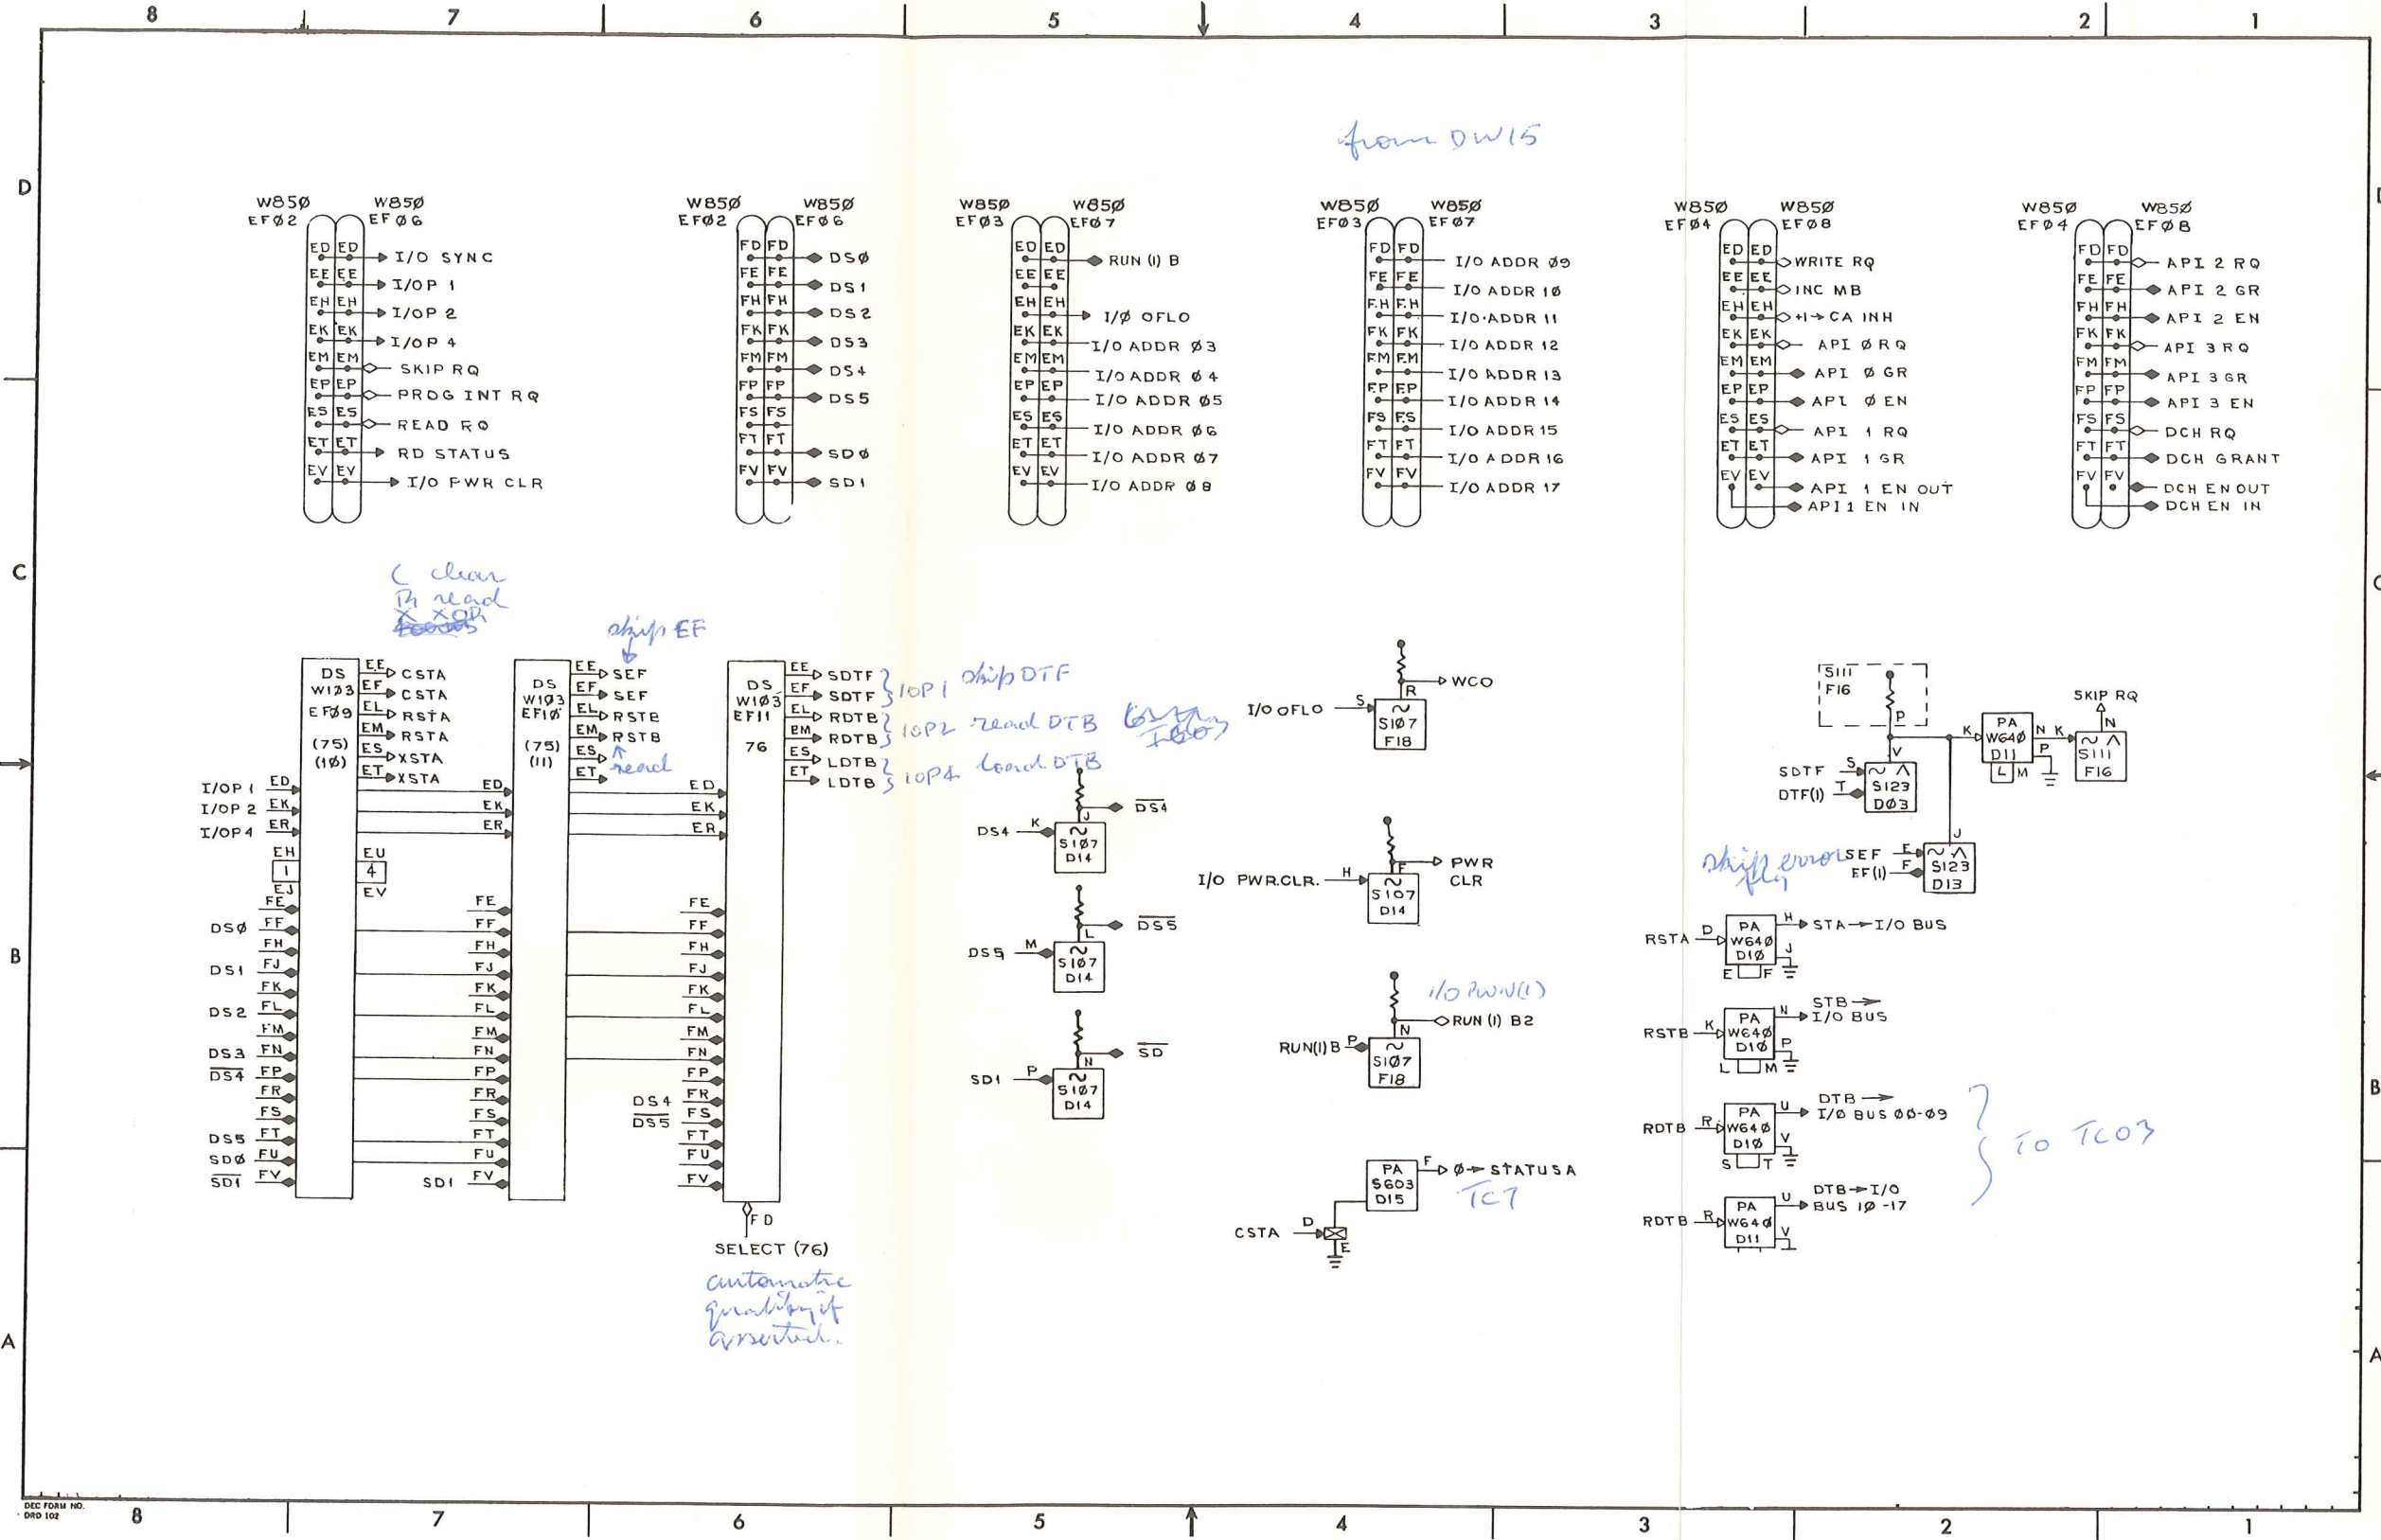 8 7 6 5 4 3 2 1
from DW15
D
W85Ø EFØ2 W85Ø EFØ6
ED ED I/O SYNC
EE EE I/OP 1
EH EH I/OP 2
EK EK I/OP 4
EM EM SKIP RQ
EP EP PROG INT RQ
ES ES READ RQ
ET ET RD STATUS
EV EV I/O PWR CLR
W85Ø EFØ2 W85Ø EFØ6
FD FD DSØ
FE FE DS1
FH FH DS2
FK FK DS3
FM FM DS4
FP FP DS5
FS FS
FT FT SDØ
FV FV SD1
W85Ø EFØ3 W85Ø EFØ7
ED ED RUN (1) B
EE EE
EH EH I/Ø OFLO
EK EK I/O ADDR Ø3
EM EM I/O ADDR Ø4
EP EP I/O ADDR Ø5
ES ES I/O ADDR Ø6
ET ET I/O ADDR Ø7
EV EV I/O ADDR Ø8
W85Ø EFØ3 W85Ø EFØ7
FD FD I/O ADDR Ø9
FE FE I/O ADDR 1Ø
FH FH I/O·ADDR 11
FK FK I/O ADDR 12
FM FM I/O ADDR 13
FP FP I/O ADDR 14
FS FS I/O ADDR 15
FT FT I/O ADDR 16
FV FV I/O ADDR 17
W85Ø EFØ4 W85Ø EFØ8
ED ED WRITE RQ
EE EE INC MB
EH EH +1→CA INH
EK EK API Ø RQ
EM EM API Ø GR
EP EP API Ø EN
ES ES API 1 RQ
ET ET API 1 GR
EV EV API 1 EN OUT
API 1 EN IN
W85Ø EFØ4 W85Ø EFØ8
FD FD API 2 RQ
FE FE API 2 GR
FH FH API 2 EN
FK FK API 3 RQ
FM FM API 3 GR
FP FP API 3 EN
FS FS DCH RQ
FT FT DCH GRANT
FV FV DCH EN OUT
DCH EN IN
C
C clear
R read
X XOR
skip EF
DS W1Ø3 EFØ9 (75) (1Ø)
EE CSTA
EF CSTA
EL RSTA
EM RSTA
ES XSTA
ET XSTA
I/OP 1 ED
I/OP 2 EK
I/OP 4 ER
EH 1 EJ
EU 4 EV
FE
DSØ FF
FH
DS1 FJ
FK
DS2 FL
FM
DS3 FN
D̅S̅4̅ FP
FR
FS
DS5 FT
SDØ FU
S̅D̅1̅ FV
DS W1Ø3 EF1Ø (75) (11)
EE SEF
EF SEF
EL RSTB
EM RSTB
ES read
ET
ED
EK
ER
FE
FF
FH
FJ
FK
FL
FM
FN
FP
FR
FS
FT
FU
SD1 FV
DS W1Ø3 EF11 76
EE SDTF
EF SDTF
IOP1 skip DTF
EL RDTB
EM RDTB
IOP2 read DTB
ES LDTB
ET LDTB
IOP4 load DTB
ED
EK
ER
FE
FF
FH
FJ
FK
FL
FM
FN
FP
DS4 FR
D̅S̅5̅ FS
FT
FU
FV
FD
SELECT (76)
automatic
asserted.
DS4 K S1Ø7 D14 J D̅S̅4̅
DS5 M S1Ø7 D14 L D̅S̅5̅
SD1 P S1Ø7 D14 N S̅D̅
I/O OFLO S S1Ø7 F18 R WCO
I/O PWR.CLR. H S1Ø7 D14 F PWR CLR
I/O RUN(1)
RUN(1)B P S1Ø7 F18 N RUN (1) B2
CSTA D E PA S603 D15 F Ø→STATUSA
TC7
S111 F16 P
SDTF S DTF(1) T S123 DØ3 V
K PA W64Ø D11 L M N P
K S111 F16 N SKIP RQ
skip error
SEF E EF(1) F S123 D13 J
RSTA D PA W64Ø D1Ø E F H J STA→I/O BUS
RSTB K PA W64Ø D1Ø L M N P STB→ I/O BUS
RDTB R PA W64Ø D1Ø S T U V DTB→ I/Ø BUS ØØ-Ø9
RDTB R PA W64Ø D11 U V DTB→I/O BUS 1Ø-17
TO TC03
B
A
DEC FORM NO.
DRD 102
8 7 6 5 4 3 2 1